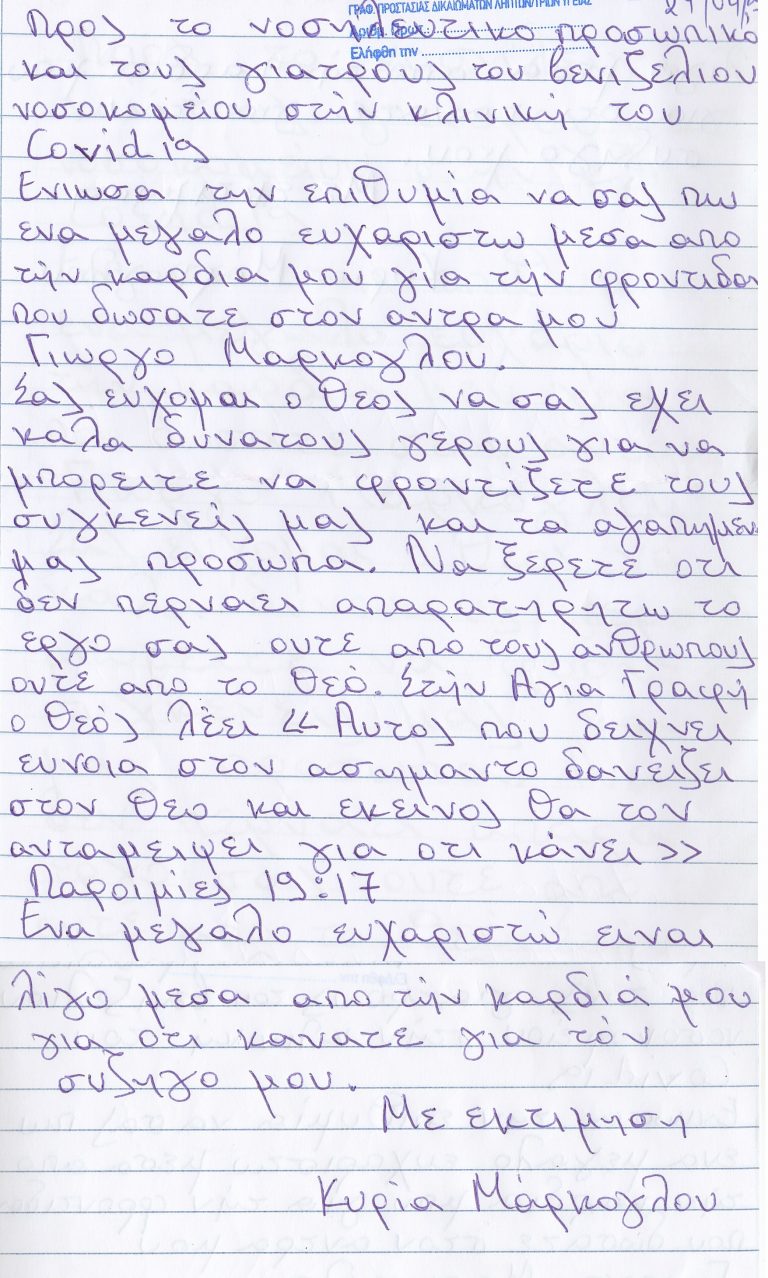 ΓΡΑΦ. ΠΡΟΣΤΑΣΙΑΣ ΔΙΚΑΙΩΜΑΤΩΝ ΛΗΠΤΩΝ/ΤΡΙΩΝ ΥΓΕΙΑΣ
Αριθμ. Πρωτ.
Ελήφθη την
Προς το νοσηλευτικο προσωπικο
και τους γιατρους του βενιζελιου
νοσοκομείου στήν κλινική του
Covid 19
Ενιωσα την επιθυμία να σας πω
ενα μεγαλο ευχαριστω μεσα απο
τήν καρδια μου για τήν φροντιδα
που δωσατε στον αντρα μου
Γιωργο Μαρκογλου.
Σας ευχομαι ο Θεος να σας εχει
καλα δυνατους γερους για να
μπορειτε να φροντίζετε τους
συγκενείς μας και τα αγαπημεν
μας προσωπα. Να ξερετε οτι
δεν περναει απαρατηρητω το
εργο σας ουτε απο τους ανθρωπους
ουτε απο το Θεό. Στήν Αγια Γραφή
ο Θεός λέει << Αυτος που δειχνει
ευνοια στον ασημαντο δανειζει
στον Θεο και εκείνος θα τον
ανταμειψει για οτι κάνει >>
Παροιμίες 19:17
Ενα μεγαλο ευχαριστώ ειναι
λίγο μεσα απο τήν καρδιά μου
για οτι κανατε για τόν
συζηγο μου.
Με εκτιμηση
Κυρία Μάρκογλου